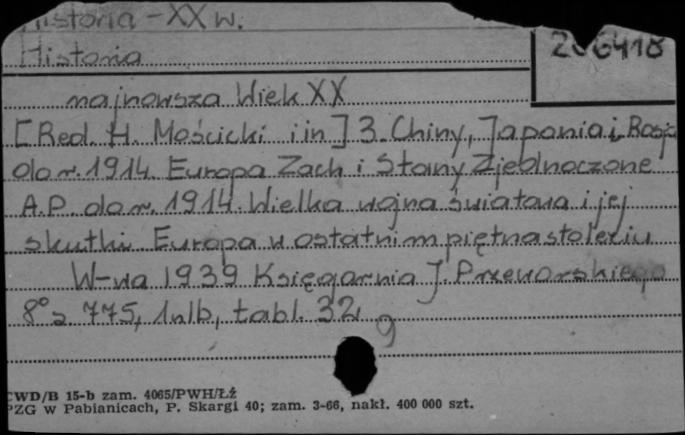 Historia - XX w.
206418
Historia
najnowsza Wiek XX
[Red. H. Mościcki i in] 3. Chiny, Japonia i Rosja
do r. 1914. Europa Zach i Stany Zjednoczone
A.P. do r. 1914. Wielka wojna światowa i jej
skutki Europa w ostatnim piętnastoleciu
W-wa 1939 Księgarnia J. Przeworskiego
8° s 775, 1 nlb, tabl. 32
9
CWD/B 15-b zam. 4065/PWH/Łż
PZG w Pabianicach, P. Skargi 40; zam. 3-66, nakł. 400 000 szt.